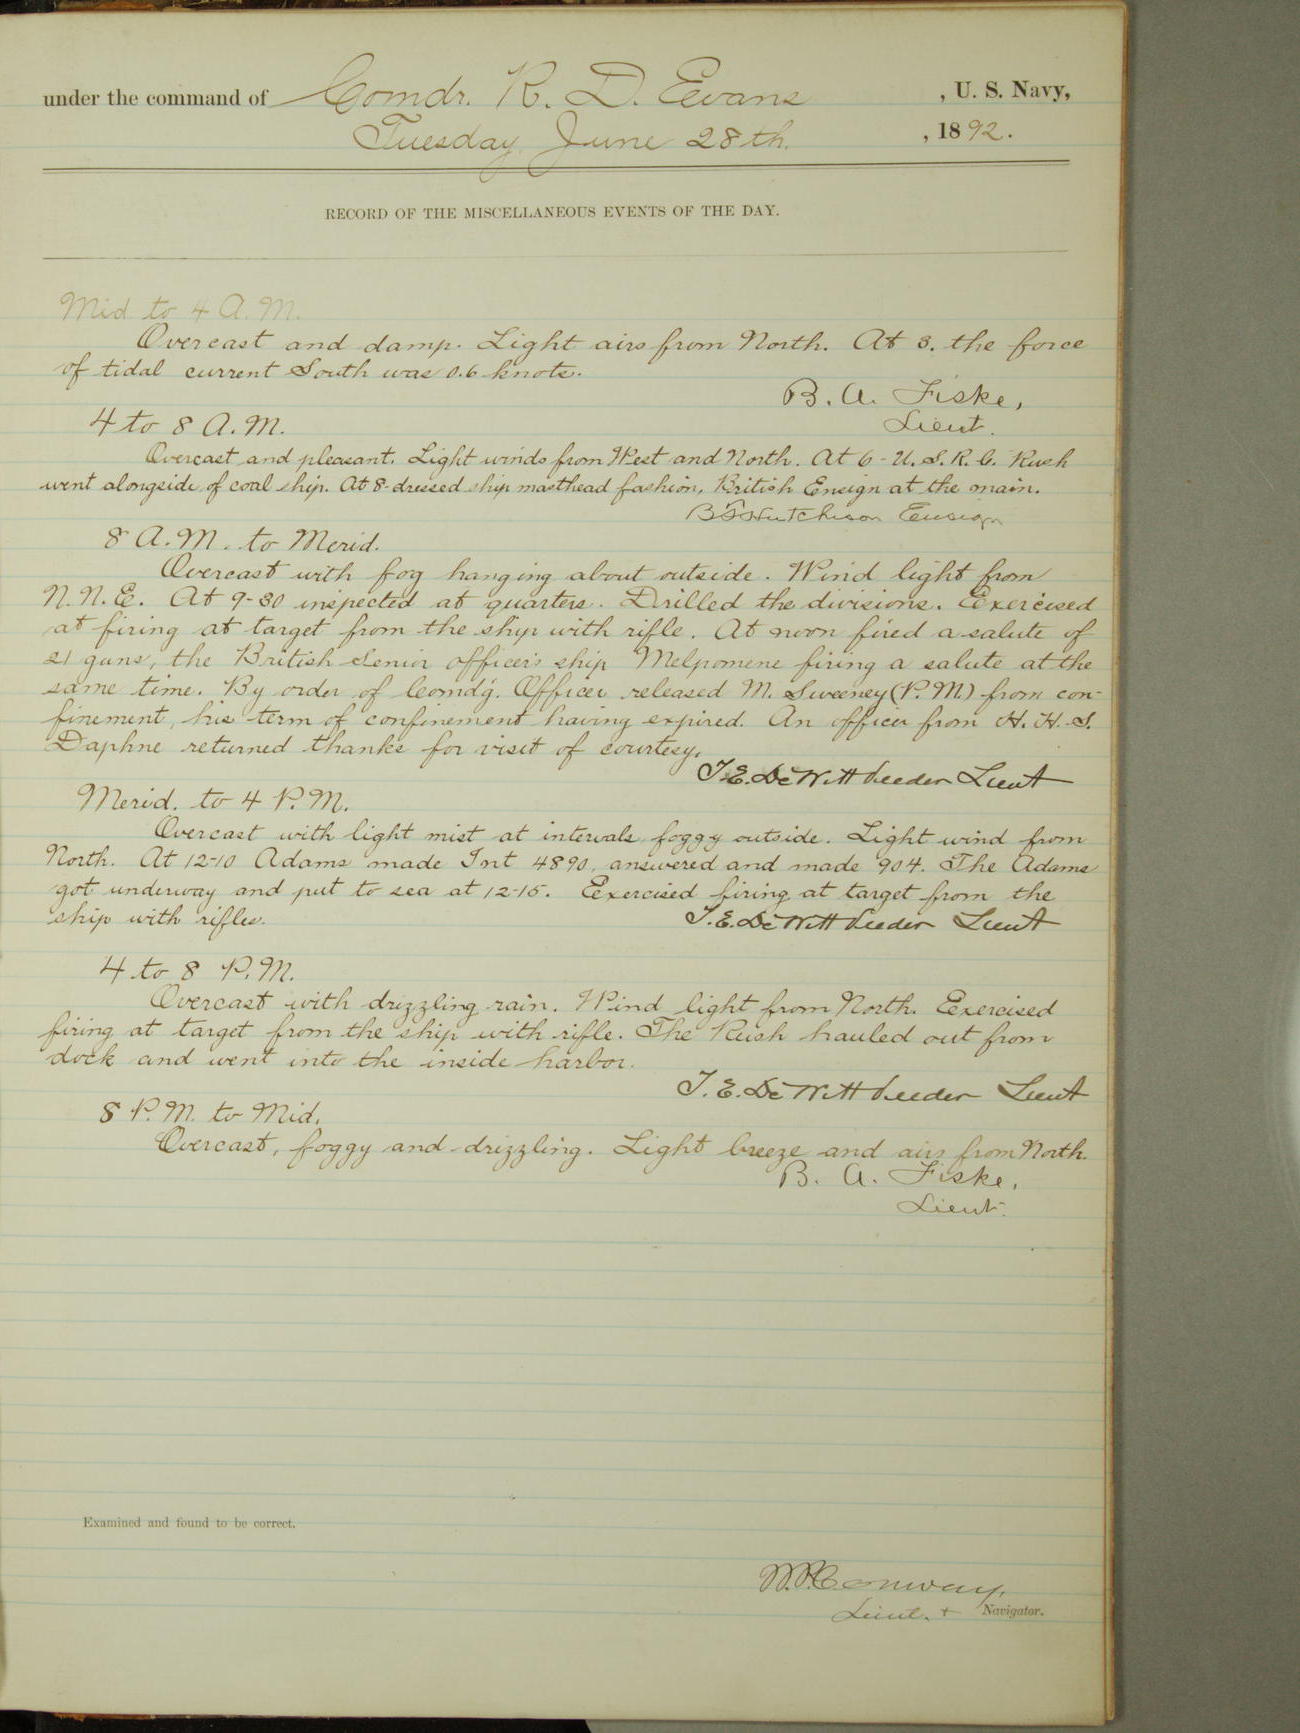 under the command of Comdr. R. D. Evans, U. S. Navy,
Tuesday, June 28th., 1892.
RECORD OF THE MISCELLANEOUS EVENTS OF THE DAY.
Mid to 4 A.M.
Overcast and damp. Light airs from North. At 3. the force
of tidal current South was 0.6 knots.
B. A. Fiske,
Lieut.
4 to 8 A.M.
Overcast and pleasant. Light winds from West and North. At 6- U.S.R.C. Rush
went alongside of coal ship. At 8- dressed ship masthead fashion, British Ensign at the main.
Hutchison Ensign
8 A.M. to Merid.
Overcast with fog hanging about outside. Wind light from
N.N.E. At 9-30 inspected at quarters. Drilled the divisions. Exercised
at firing at target from the ship with rifle. At noon fired a salute of
21 guns, the British Senior officer's ship Melpomene firing a salute at the
same time. By order of Comd'g. Officer released M. Sweeney (P.M.) from con-
finement, his term of confinement having expired. An officer from H.H.S.
Daphne returned thanks for visit of courtesy.
T.E. DeWitt Veeder Lieut
Merid. to 4 P.M.
Overcast with light mist at intervals foggy outside. Light wind from
North. At 12-10 Adams made Int 4890, answered and made 904. The Adams
got underway and put to sea at 12-15. Exercised firing at target from the
ship with rifles. T.E. DeWitt Veeder Lieut
4 to 8 P.M.
Overcast with drizzling rain. Wind light from North. Exercised
firing at target from the ship with rifle. The Rush hauled out from
dock and went into the inside harbor.
T.E. DeWitt Veeder Lieut
8 P.M. to Mid.
Overcast, foggy and drizzling. Light breeze and airs from North.
B. A. Fiske,
Lieut.
Examined and found to be correct.
W.P. Conway,
Lieut. + Navigator.